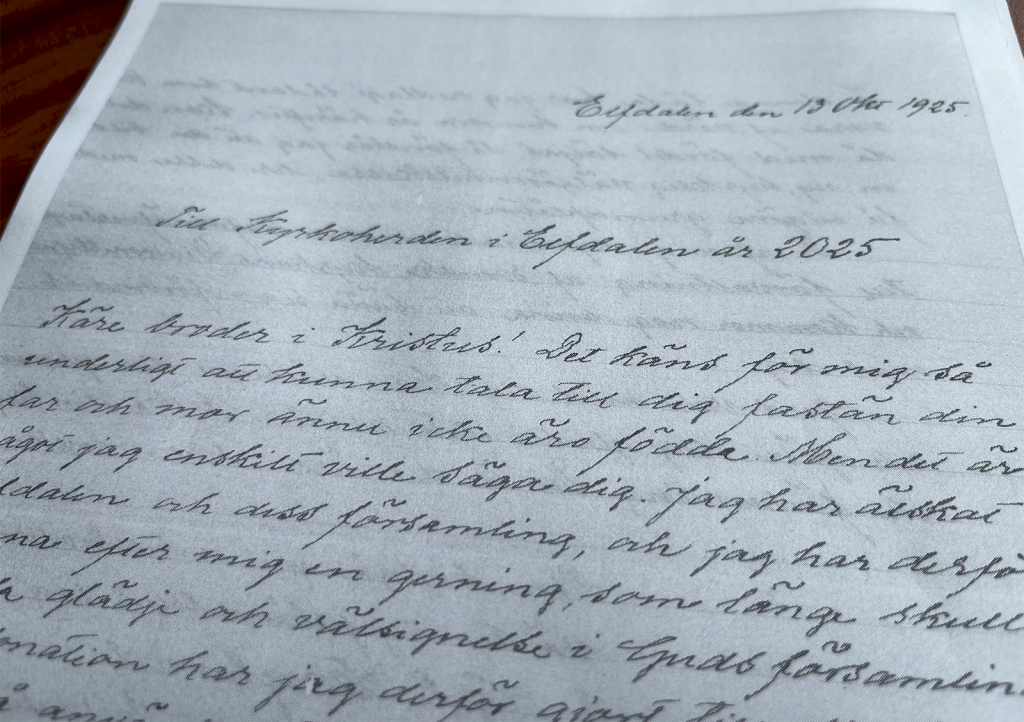 Elfdalen den 13 Okt 1925.
Till Kyrkoherden i Elfdalen år 2025
Käre broder i Kristus! Det käns för mig så
underligt att kunna tala till dig fastän din
far och mor ännu icke äro födda. Men det är
något jag enskilt ville säga dig. Jag har älskat
och dess församling, och jag har
efter mig en gerning, som länge
glädje och välsignelse i Guds
har jag derför gjort